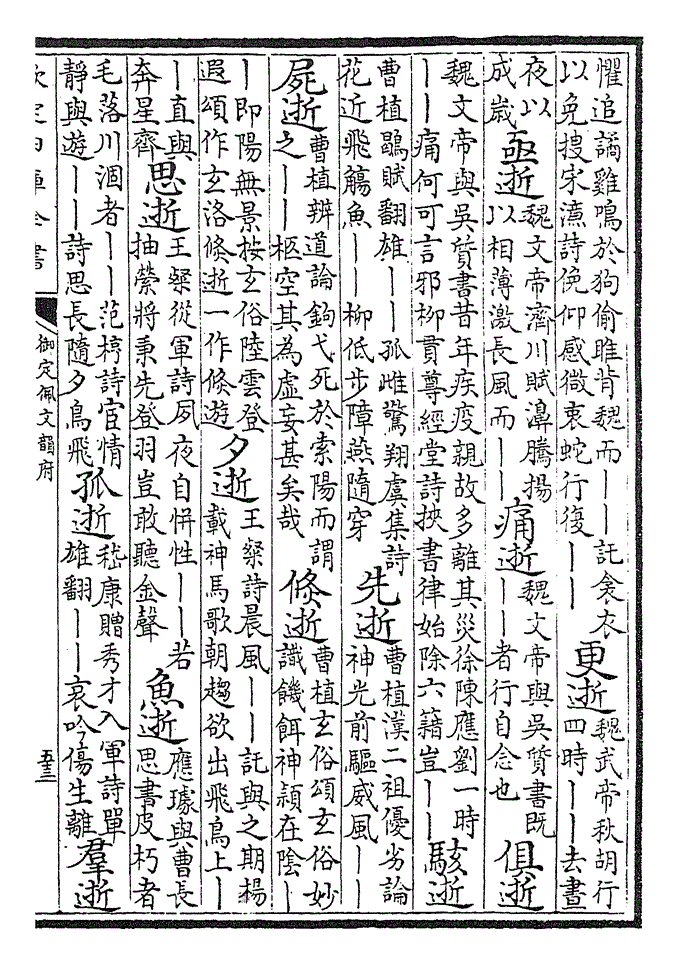 懼追譎雞鳴於狗偷雎肯魏而——託衮衣
以免搜宋濂詩俛仰感微衷蛇行復——
更逝
魏武帝秋胡行
四時——去晝
夜以
成歲
亟逝
魏文帝濟川賦濞騰揚
以相薄激長風而——
痛逝
魏文帝與吳質書既
——者行自念也
俱逝
魏文帝與吳質書昔年疾疫親故多離其災徐陳應劉一時
——痛何可言邪柳貫尊經堂詩挾書律始除六籍豈——
駭逝
曹植鶡賦翻雄——孤雌驚翔虞集詩
花近飛觴魚——柳低步障燕隨穿
先逝
曹植漢二祖優劣論
神光前驅威風——
屍逝
曹植辨道論鉤弋死於索陽而謂
之——柩空其為虛妄甚矣哉
倏逝
曹植玄俗頌玄俗妙
識饑餌神頴在陰—
—即陽無景按玄俗陸雲登
遐頌作玄洛倏逝一作倏遊
夕逝
王粲詩晨風——託與之期楊
載神馬歌朝趨欲出飛鳥上—
—直與
奔星齊
思逝
王粲從軍詩夙夜自恲性——若
抽縈將秉先登羽豈敢聽金聲
魚逝
應璩與曹長
思書皮朽者
毛落川涸者——范梈詩官情
靜與遊——詩思長隨夕鳥飛
孤逝
嵇康贈秀才入軍詩單
雄翻——哀吟傷生離
羣逝
欽定四庫全書
御定佩文韻府
五十三